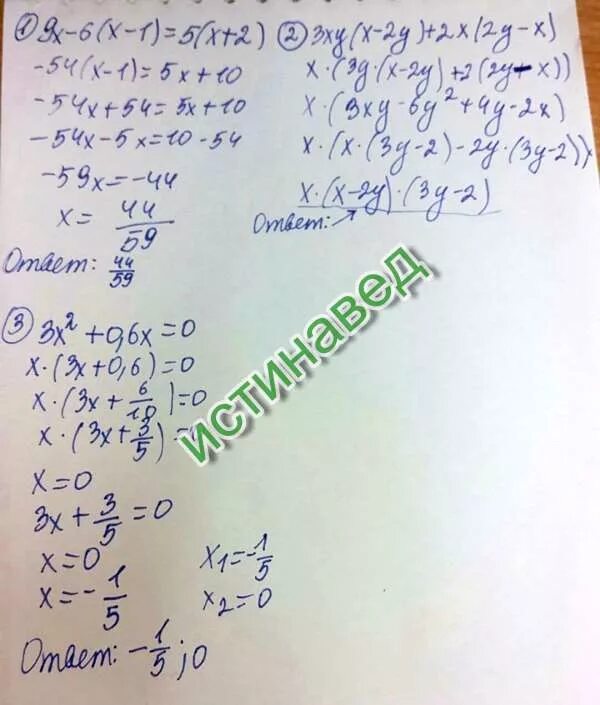 ① 9x-6(x-1)=5(x+2)
-54(x-1)=5x+10
-54x+54=5x+10
-54x-5x=10-54
-59x=-44
x= 44/59
Ответ: 44/59
② 3xy(x-2y)+2x(2y-x)
x·(3y·(x-2y)+2(2y-x))
x·(3xy-6y²+4y-2x)
x·(x·(3y-2)-2y·(3y-2))
x·(x-2y)·(3y-2)
Ответ:
③ 3x²+0,6x=0
x·(3x+0,6)=0
x·(3x+6/10)=0
x·(3x+3/5)=
x=0
3x+3/5=0
x=0
x=-1/5
x₁=-1/5
x₂=0
Ответ: -1/5;0
истинавед